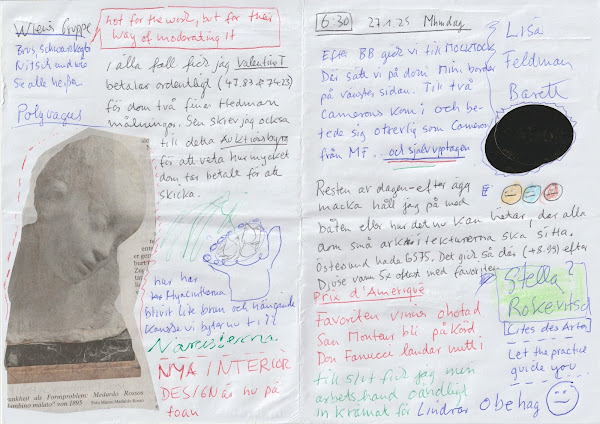 Wiener Gruppe
hot for the work, but for their
way of moderating it
Brus, Schwarzkogler
Nitsch
Se alle
Polyvagus
I alla fall fick jag Valentin T
betalar ordentligt (47.83 # 7423)
för dom två fina Hedman
målningar. Sen skrev jag också
till detta Auktionsbyrå
för att veta hur mycket
dom tar betalt för att
skicka.
hur har
Hyacinterna
blivit lite brun och hängande
kanske vi byter nu till
Narcisserna.
NYA INTERIÖR
DESIGN är nu på
toan
ankheit als Formproblem: Medardo Rossos
bambino malato" von 1895
Foto Museo Medardo Rosso
6:30 27.1.25 Mhmdag
Efter BB gick vi till
Där satt vi på dom Mini border
på vänster sidan. Till två
Camerons kom i och be-
tede sig otrevlig som Cameron
från MF ... och självupptagen
Lisa
Feldman
Barett
Resten av dagen efter ägg
macka håll jag på med
båten eller hur det nu kan heta, der alla
dom små arkitekturerna ska sitta.
Östersund hade GS75. Det gick så där (+8.95) efter
Djuse vann 5x okest med favoriten
Prix d'Amerique
Favoriten vinner ohotad
San Moteur bli på kord
Don Fanucci landar mitt i
till slut fick jag min
arbets hand oändligt
in krämat för Lindrar obehag
Stella ?
Rokevitsch
(Cites des Artes)
Let the practice
guide you